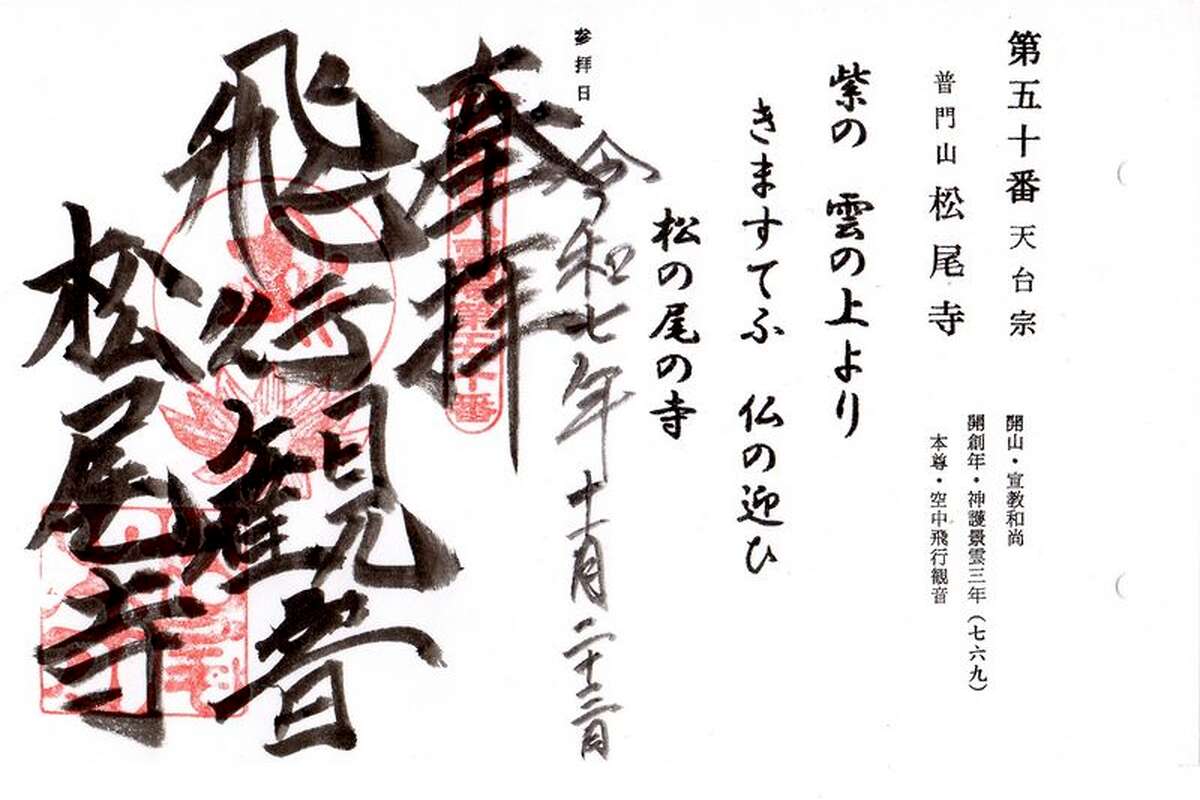 第五十番 天台宗
普門山 松尾寺
開山・宣教和尚
開創年・神護景雲三年(七六九)
本尊・空中飛行観音
紫の 雲の上より
きますてふ 仏の迎ひ
松の尾の寺
参拝日
令和七年 十一月 二十三日
奉拝
第五十番
飛行観音
松尾寺